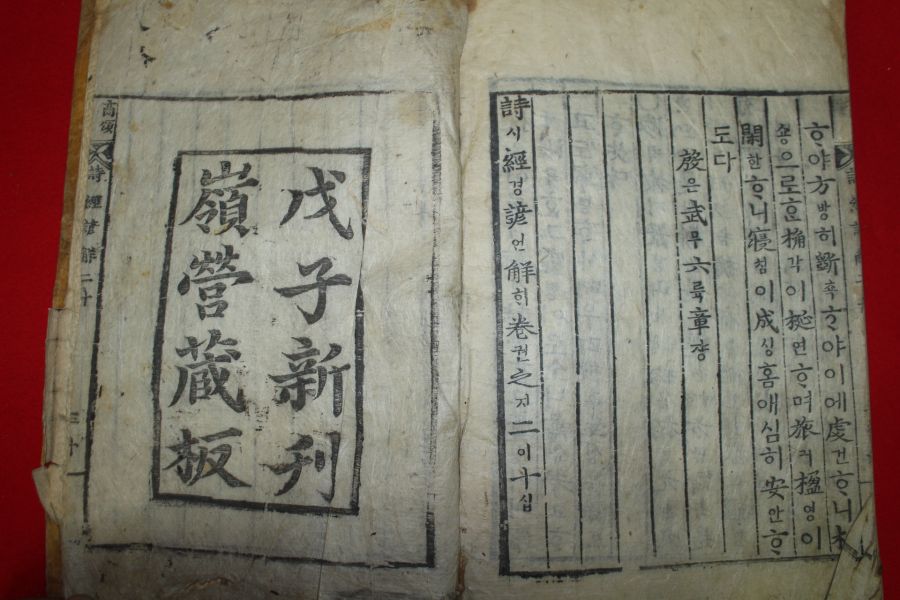 ᄒᆞ야方방히斲ᄒᆞ야이예虔건ᄒᆞ니
숑으로ᄒᆞᆫ桷각이梴연ᄒᆞ며旅려楹영이
閑한ᄒᆞ니寢침이成셩홈애심히安안ᄒᆞ
도다
殷은武무六륙章쟝
詩시經경諺언解ᄒᆡ卷권之지二이十십
戊子新刊
嶺營藏板
商頌
詩經諺解二十